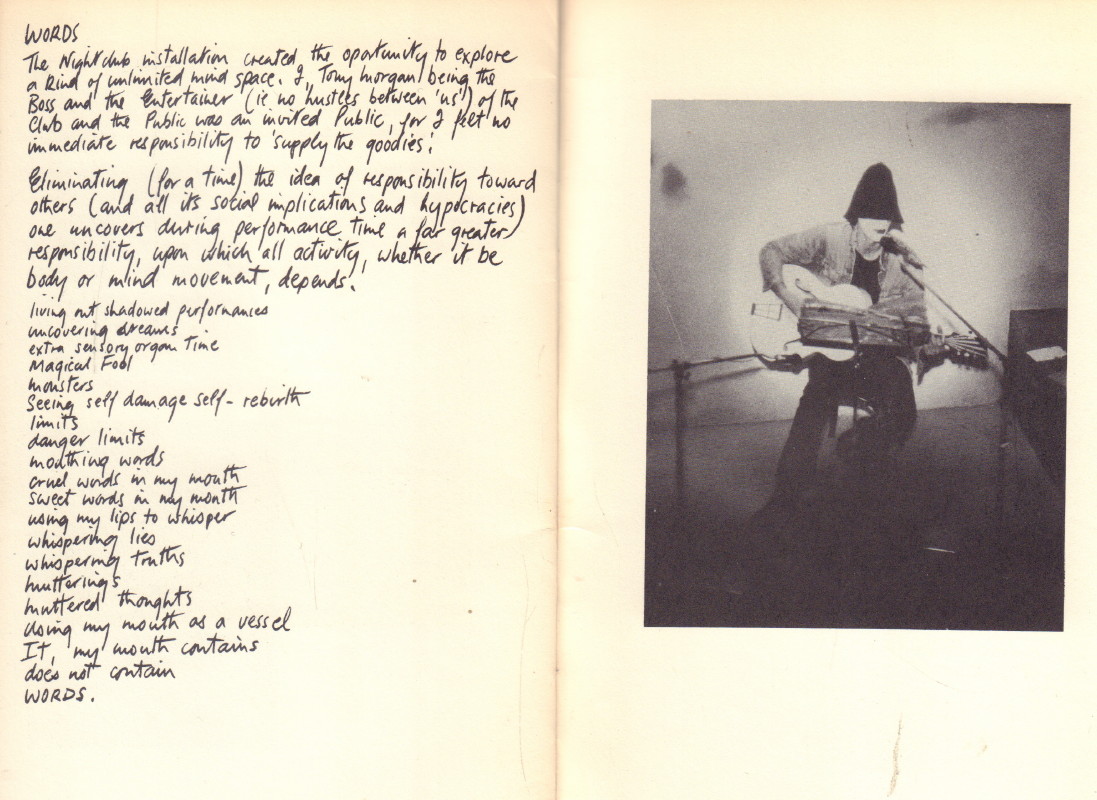 WORDS
The Nightclub installation created the oportunity to explore
a kind of unlimited mind space. I, Tony Morgan being the
Boss and the Entertainer (ie no hustles between 'us') of the
Club and the Public was an invited Public, for I felt no
immediate responsibility to 'supply the goodies'.
Eliminating (for a time) the idea of responsibility toward
others (and all its social implications and hypocracies)
one uncovers during performance time a far greater
responsibility, upon which all activity, whether it be
body or mind movement, depends.
living out shadowed performances
uncovering dreams
extra sensory organ time
Magical Fool
monsters
Seeing self damage self-rebirth
limits
danger limits
mouthing words
cruel words in my mouth
sweet words in my mouth
using my lips to whisper
whispering lies
whispering truths
mutterings
muttered thoughts
using my mouth as a vessel
It, my mouth contains
does not contain
WORDS.